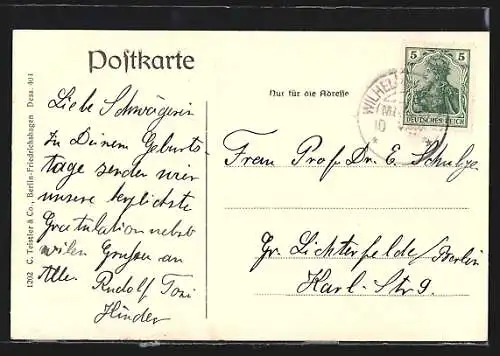 Postkarte
Nur für die Adresse
5 5
DEUTSCHES REICH
WILHEL
10
Liebe Schwägerin
Zu Deinem Geburts-
tage senden wir
unsere herzlichste
Gratulation nebst
vielen Grüßen an
Alle. Rudolf Toni
Kinder
Frau Prof. Dr. E. Schulze
Gr. Lichterfelde/Berlin
Karl-Str 9.
1202 C. Teissler & Co., Berlin-Friedrichshagen Dess. 401